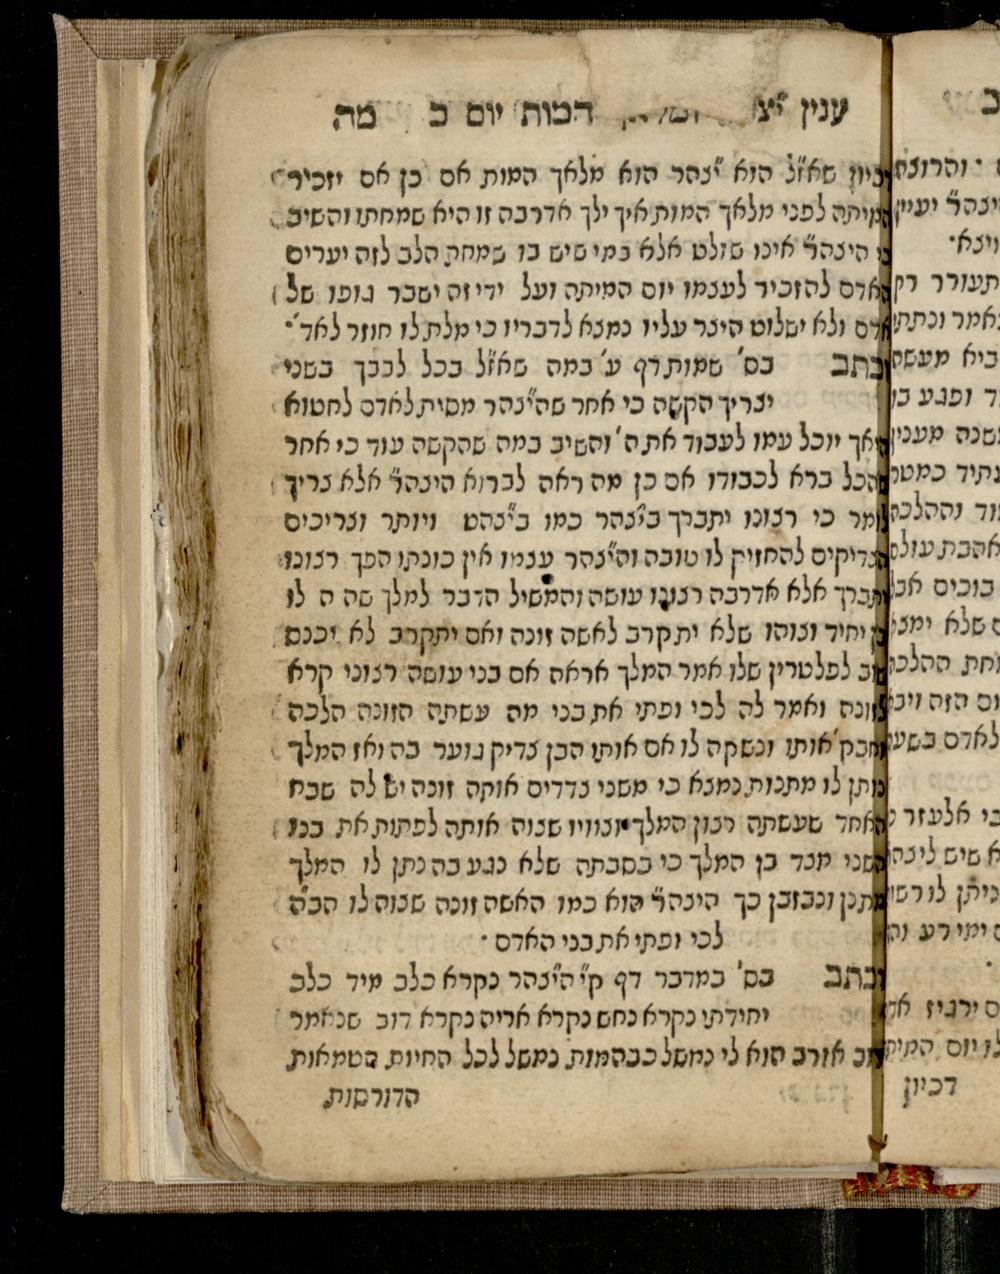 ענין יצ דמות יום כ מה
דכיון שאז״ל הוא י״צהר הוא מלאך המות אם כן אם יזכיר
המיתה לפני מלאך המות איך ילך אדרבה זו היא שמחתו והשיב
כי היצה״ר אינו שולט אלא במי שיש בו שמחת הלב לזה יערים
האדם להזכיר לעצמו יום המיתה ועל ידי זה ישבר גופו של
אדם ולא ישלוט היצר עליו נמצא לדבריו כי מלת לו חוזר לאד׳
וכתב בס׳ שמות דף ע׳ במה שאז״ל בכל לבבך בשני
יצריך הקשה כי אחר שהי״צהר מסית לאדם לחטוא
היאך יוכל עמו לעבוד את ה׳ והשיב במה שהקשה עוד כי אחר
שהכל ברא לכבודו אם כן מה ראה לברוא היצה״ר אלא צריך
לומר כי רצונו יתברך בי״צהר כמו בי״צהט ויותר וצריכים
הצדיקים להחזיק לו טובה והי״צהר עצמו אין כונתו הפך רצונו
יתברך אלא אדרבה רצונו עושה והמשיל הדבר למלך שה ה לו
בן יחיד וצוהו שלא יתקרב לאשה זונה ואם יתקרב לא יכנס
שוב לפלטרין שלו אמר המלך אראה אם בני עושה רצוני קרא
לזונה ואמר לה לכי ופתי את בני מה עשתה הזונה הלכה
וחבק׳אותו ונשקה לו אם אותו הבן צדיק גוער בה ואז המלך
נותן לו מתנות נמצא כי משני צדדים אותה זונה יש לה שבח
האחד שעשתה רצון המלך וצוויו שצוה אותה לפתות את בנו
השני מצד בן המלך כי בסבתה שלא נגע בה נתן לו המלך
מתנן ונבזבן כך היצה״ר הוא כמו האשה זונה שצוה לו הב״ה
לכי ופתי את בני האדם ·
וכתב בס׳ במדבר דף ק״י הי״צהר נקרא כלב מיד כלב
יחידתי נקרא נחש נקרא אריה נקרא דוב שנאמר
דוב אורב הוא לי נמשל כבהמות נמשל לכל החיות הטמאות
הדורסות
והרוצח
היצה״ר יעיין
ויצא·
תעורר רק
נאמר ונתתי
ביא מעשה
ד ופגע בו
שנה מענין
נתיד כמטר
וד וההלכה
אהבת עולם
בוכים אבל
ם שלא ימצא
וחת ההלכה
ום הזה ויבא
לאדם בשעה
בי אלעזר
א שיש ליצה
ניתן לו רשו
ם ימי רע וה
ם ירגיז
לו יום המית
דכיון